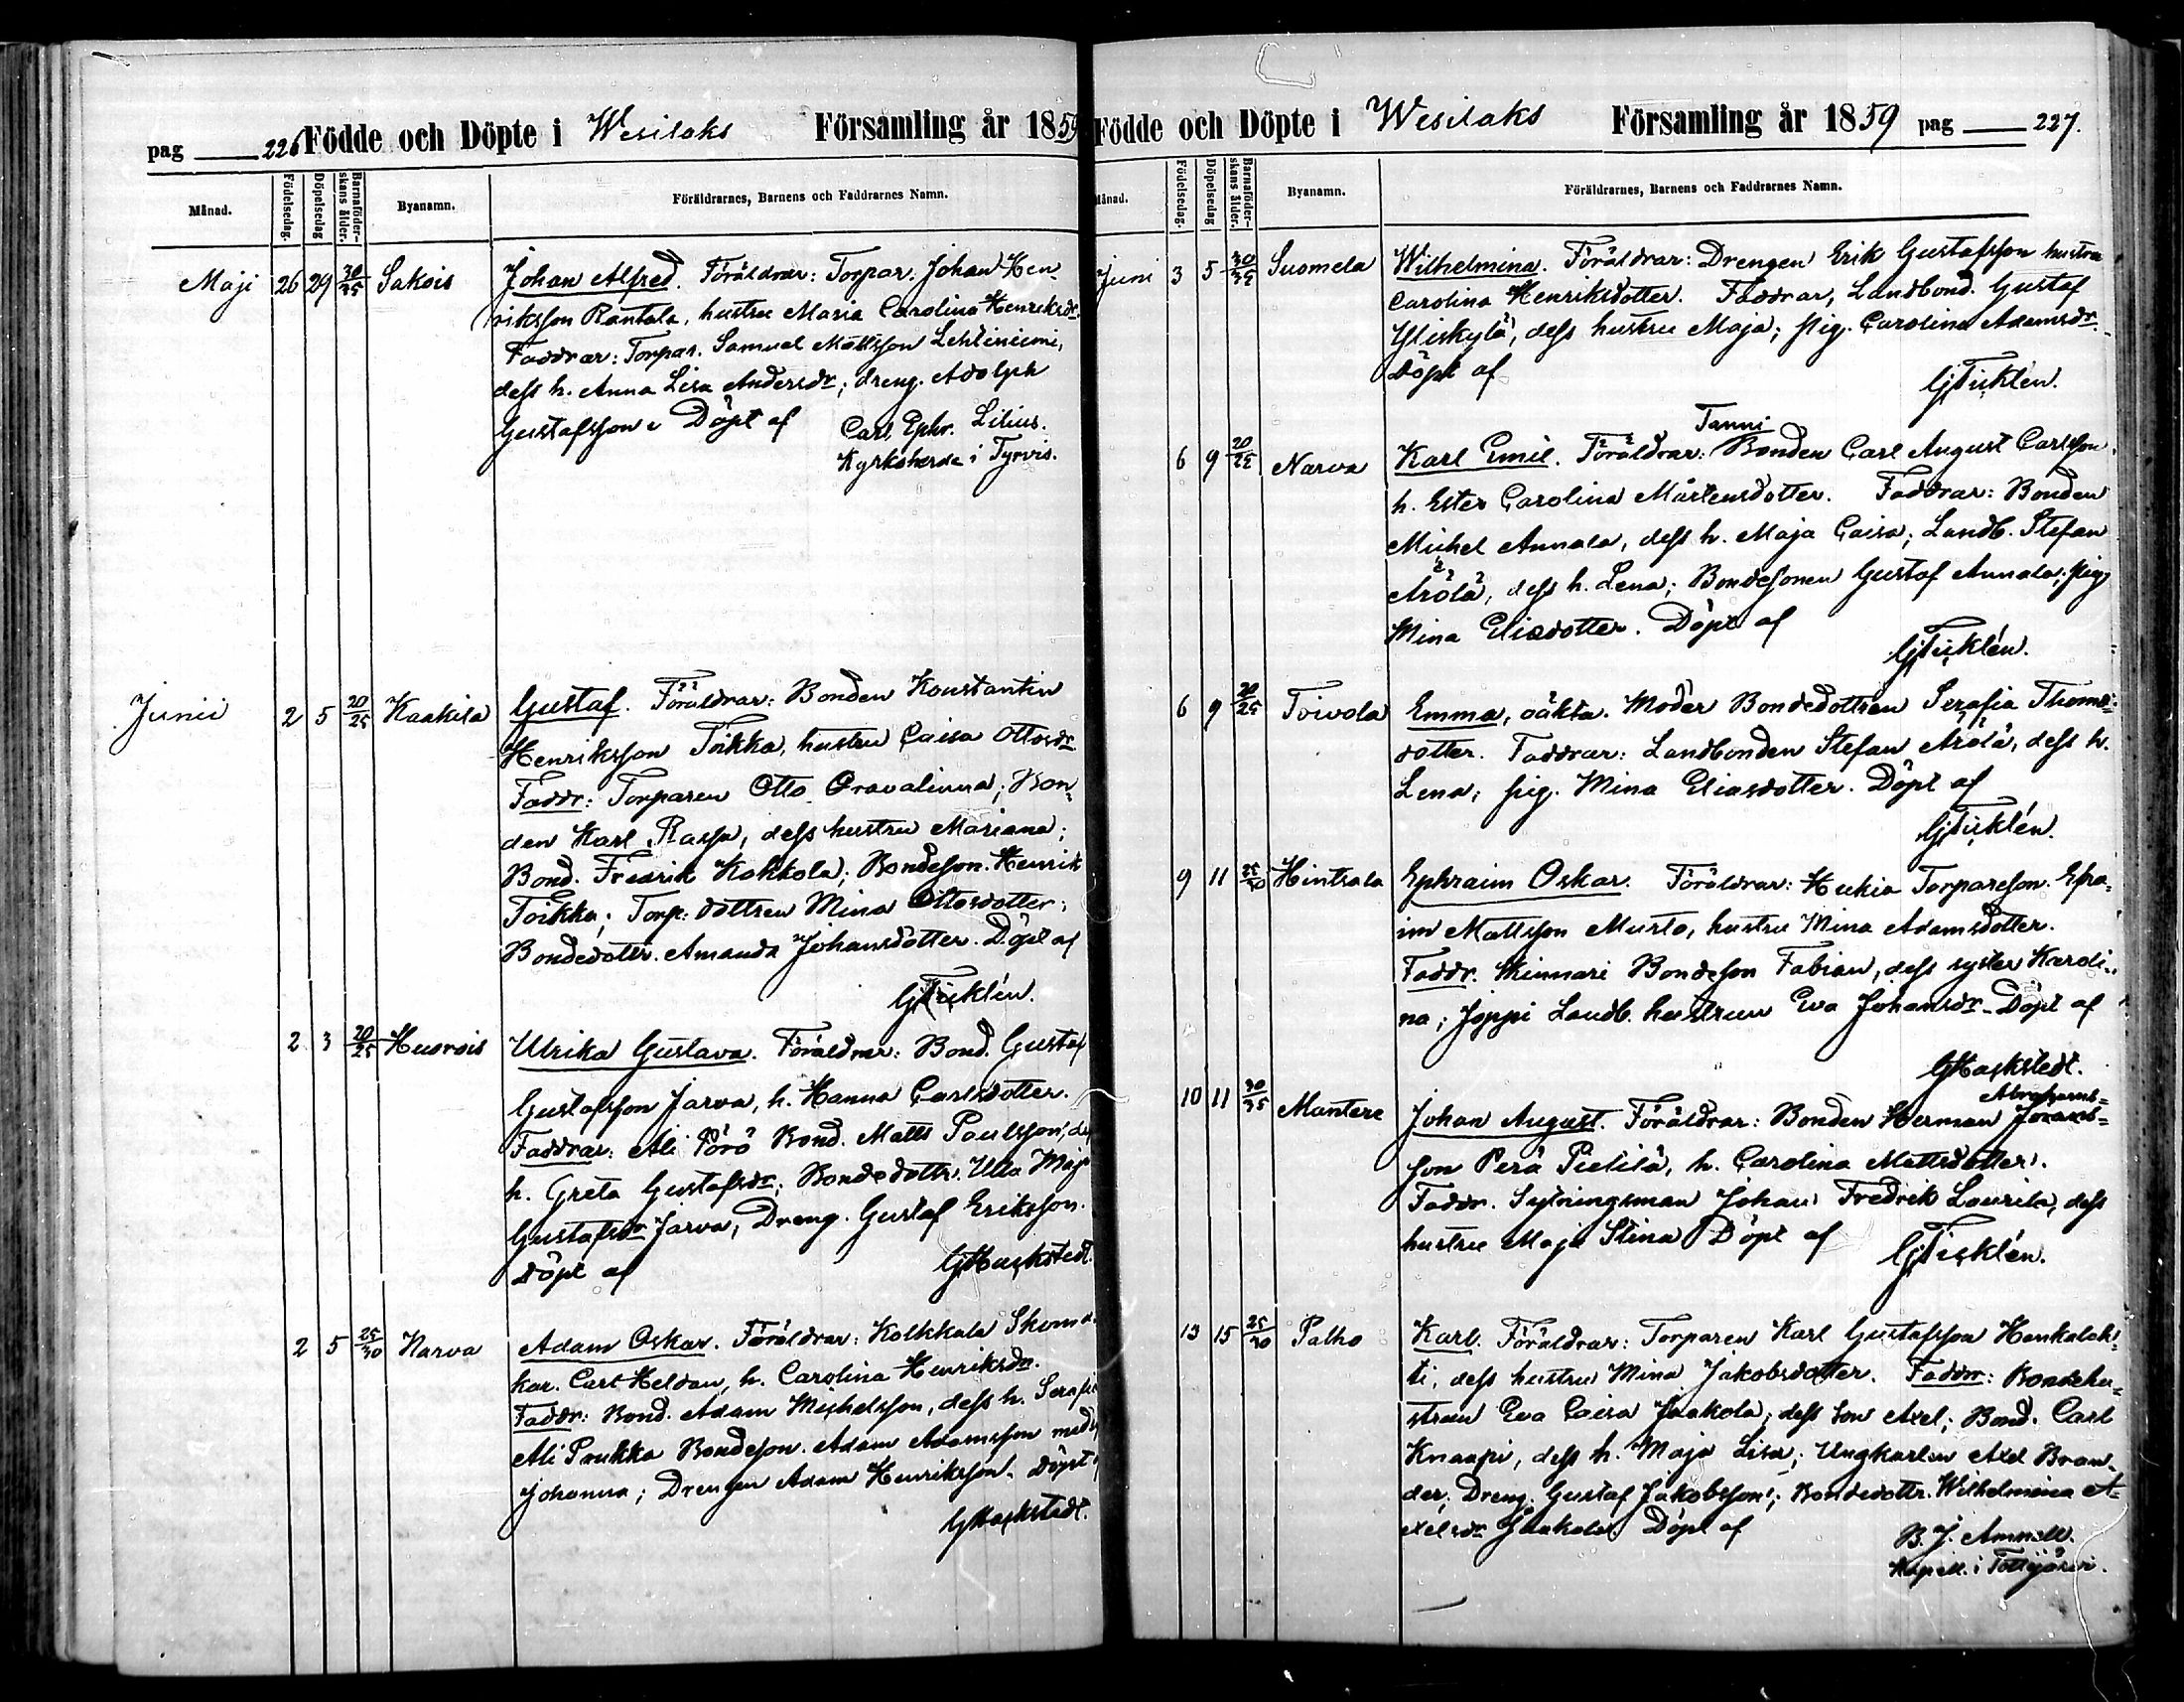 pag 226 Födde och Döpte i Wesilaks Församling år 1859
Månad. Födelsedag. Döpelsedag Barnaföderskans ålder. Byanamn. Föräldrarnes, Barnens och Faddrarnes Namn.
Maji 26 29 30/35 Sakois Johan Alfred. Föräldrar: Torpar. Johan Hen-
riksson Rantala, hustru Maria Carolina Henriksdr.
Faddrar: Torpar. Samuel Mattsson Lehtiniemi,
dess h. Anna Lisa Andersdr; dreng. Adolph
Gustafsson. Döpt af Carl Ephr. Lilius.
Kyrkoherde i Tyrvis.
Junii 2 5 20/25 Kaakila Gustaf. Föräldrar: Bonden Konstantin
Henriksson Toikka, hustru Caisa Ottosdr
Faddr: Torparen Otto Oravalinna; Bon-
den Karl Rassa, dess hustru Mariana;
Bond. Fredrik Kokkola; Bondeson. Henrik
Toikka; Torp: dottren Mina Ottosdotter;
Bondedottr. Amanda Johansdotter. Döpt af
GjTicklén.
2 3 20/25 Huorois Ulrika Gustava. Föräldrar: Bond. Gustaf
Gustafsson Jarva, h. Hanna Carlsdotter.
Faddrar: Ali Pörö Bond. Matts Paulsson, de
h. Greta Gustafsdr; Bondedottr. Ulla Maja
Gustafsdr Jarva, Dreng. Gustaf Eriksson.
Döpt af GHackstedt.
2 5 25/30 Narva Adam Oskar. Föräldrar: Kolkkala Skoma-
kar. Carl Heldan, h. Carolina Henriksdr.
Faddr: Bond. Adam Michelsson, dess h. Serafia
Ali Prukka Bondeson. Adam Adamsson med
Johanna; Drengen Adam Henriksson. Döpt
GHackstedt.
Födde och Döpte i Wesilaks Församling år 1859 pag 227.
Månad. Födelsedag. Döpelsedag Barnaföderskans ålder. Byanamn. Föräldrarnes, Barnens och Faddrarnes Namn.
Juni 3 5 30/35 Suomela Wilhelmina. Föräldrar: Drengen Erik Gustafsson hustru
Carolina Henriksdotter. Faddrar, Landbond. Gustaf
Yliskylä, dess hustru Maja; pig. Carolina Adamsdr.
Döpt af GjTicklén.
Tanni
6 9 20/25 Narva Karl Emil. Föräldrar: Bonden Carl August Carlsson
h. Ester Carolina Mårtensdotter. Faddrar: Bonden
Michel Annala, dess h. Maja Caisa; Landb. Stefan
Arölä, dess h. Lena; Bondesonen Gustaf Annala; pig
Mina Eliasdotter. Döpt af
GjTicklén.
6 9 20/25 Toivola Emma, oäkta. Moder Bondedottren Serafia Thoms-
dotter. Faddrar: Landbonden Stefan Arölä, dess h.
Lena; pig. Mina Eliasdotter. Döpt af
GjTicklén.
9 11 25/30 Hintsala Ephraim Oskar. Föräldrar: Hukia Torpareson. Efra-
im Mattsson Musto, hustru Mina Adamsdotter.
Faddr. Kinnari Bondeson Fabian, dess syster Karoli-
na; Joppi Landb. hustrun Eva Johansdr. Döpt af
GHackstedt.
Abrahams-
10 11 30/35 Mantere Johan August. Föräldrar: Bonden Herman Johans-
son Perä Pietilä, h. Carolina Mattsdotter.
Faddr. Sytningsman Johan Fredrik Laurila, dess
hustru Maja Stina Döpt af GjTicklén.
13 15 25/30 Palho Karl. Föräldrar: Torparen Karl Gustafsson Honkalah-
ti, dess hustru Mina Jakobsdotter. Faddr: Bondehu-
strun Eva Caisa Jaakola, dess son Axel; Bond. Carl
Knaapi, dess h. Maja Lisa; Ungkarlen Axel Bran-
der, Dreng. Gustaf Jakobsson; Bondedottr. Wilhelmina A-
xelsdr Jaakola Döpt af B. J. Amnell.
Kapell. i Tottijärvi.